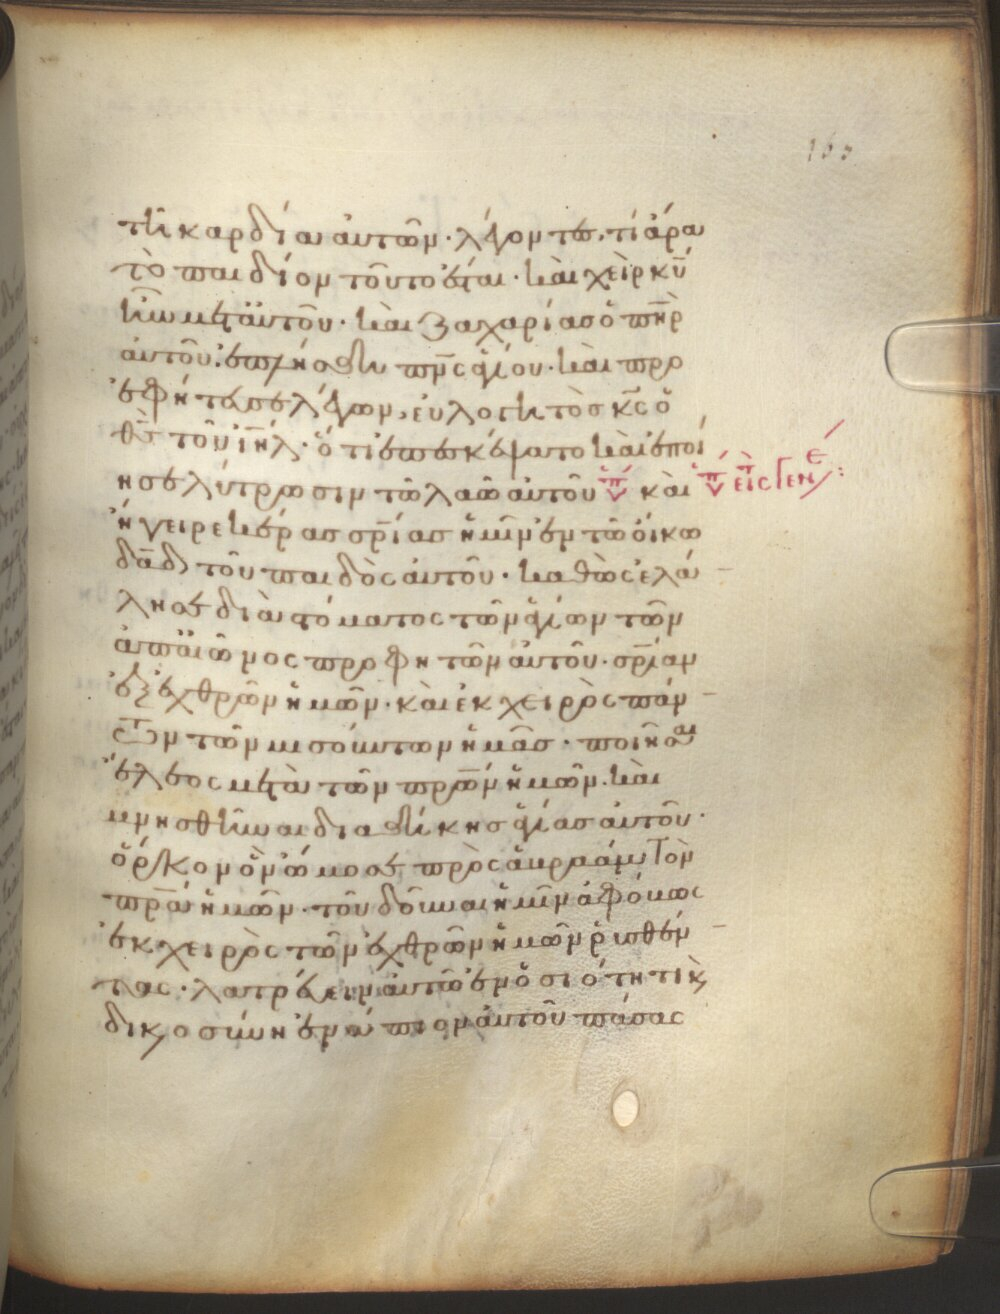 τῆ καρδία αὐτῶν· λέγοντες, τί ἄρα
τὸ παιδίον τοῦτο ἔσται· καὶ χεὶρ κυ
ἦν μετ' αὐτοῦ· καὶ Ζαχαρίας ὁ πηρ
αὐτοῦ· ἐπλήσθη πνς ἁγίου· καὶ προ
εφήτευσε λέγων, εὐλογητὸς κς ὁ
θς τοῦ ιηλ· ὅτι ἐπεσκέψατο καὶ ἐποί
ησε λύτρωσιν τῶ λαῶ αὐτοῦ καὶ
ἤγειρε κέρας σρίας ἡμῖν ἐν τῶ οἴκω
δαδ τοῦ παιδὸς αὐτοῦ· καθὼς ἐλά
λησε διὰ στόματος τῶν ἁγίων τῶν
ἀπ' αἰῶνος προφητῶν αὐτοῦ· σρίαν
ἐξ ἐχθρῶν ἡμῶν· καὶ ἐκ χειρὸς πάν
των τῶν μισούντων ἡμᾶς· ποιῆσαι
ἔλεος μετὰ τῶν πρων ἡμῶν· καὶ
μνησθῆναι διαθήκης ἁγίας αὐτοῦ·
ὅρκον ὃν ὤμοσε πρὸς ἀβραὰμ τὸν
πρα ἡμῶν· τοῦ δοῦναι ἡμῖν ἀφόβως
ἐκ χειρὸς τῶν ἐχθρῶν ἡμῶν ῥυσθέν
τας· λατρεύειν αὐτῶ ἐν ὁσιότητι κ
δικαιοσύνη ἐνώπιον αὐτοῦ πάσας